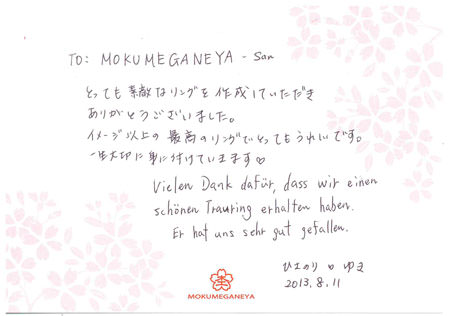 TO: MOKUMEGANEYA - San
とっても素敵なリングを作成していただき
ありがとうございました。
イメージ以上の最高のリングでとってもうれしいです。
一生大切に身に付けていきます♡
Vielen Dank dafür, dass wir einen
schönen Trauring erhalten haben.
Er hat uns sehr gut gefallen.
ひでのり ♡ ゆき
2013. 8. 11
MOKUMEGANEYA